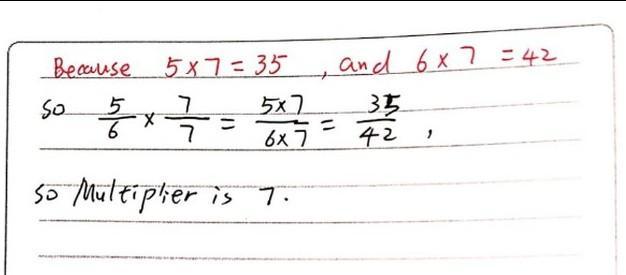 Because 5×7=35, and 6×7=42
so 5/6 × 7/7 = 5×7/6×7 = 35/42,
so Multiplier is 7.